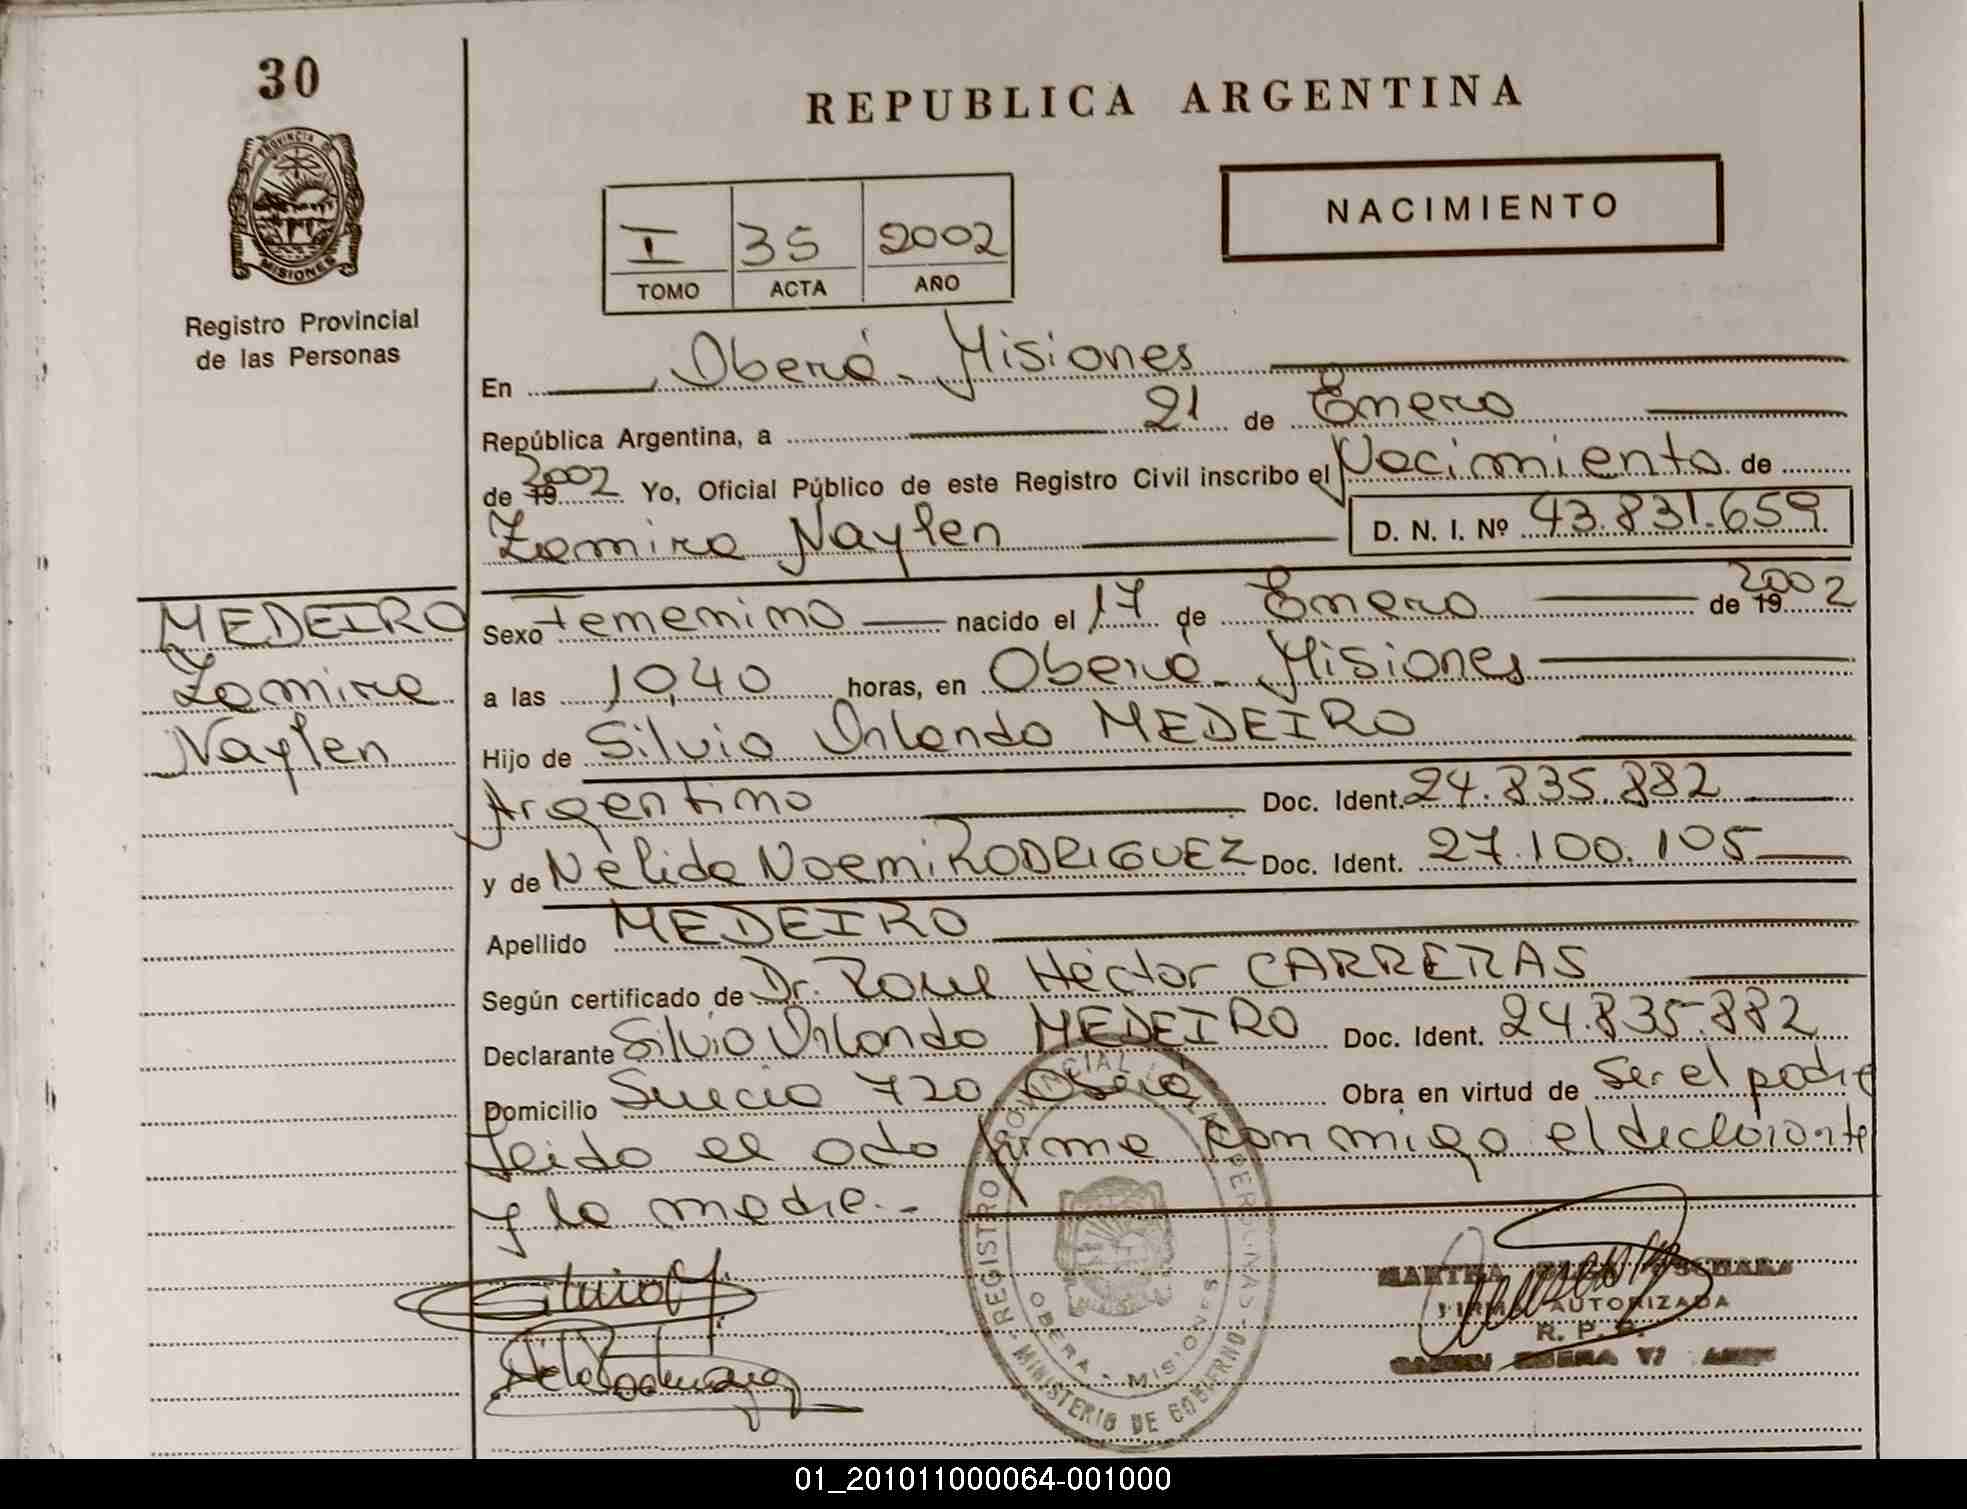 30
PROVINCIA DE
MISIONES
Registro Provincial
de las Personas
REPUBLICA ARGENTINA
NACIMIENTO
I 35 2002
TOMO ACTA AÑO
En Oberá - Misiones
República Argentina, a 21 de Enero
de 19 2002 Yo, Oficial Público de este Registro Civil inscribo el Nacimiento de
Zamira Naylen D. N. I. Nº 43.831.659
MEDEIRO
Zamira
Naylen
Sexo Femenino nacido el 17 de Enero de 19 2002
a las 10,40 horas, en Oberá - Misiones
Hijo de Silvio Orlando MEDEIRO
Argentino Doc. Ident. 24.835.882
y de Nélida Noemi RODRIGUEZ Doc. Ident. 27.100.105
Apellido MEDEIRO
Según certificado de Dr. Raul Héctor CARRERAS
Declarante Silvio Orlando MEDEIRO Doc. Ident. 24.835.882
Domicilio Suecia 720 Oberá Obra en virtud de Ser el padre
Leido el acta firma conmigo el declarante
y la madre.-
Silvio M
REGISTRO PROVINCIAL DE LAS PERSONAS
MINISTERIO DE GOBIERNO
OBERA - MISIONES
MARTHA
FIRMA AUTORIZADA
R. P. P.
OBERA
01_201011000064-001000